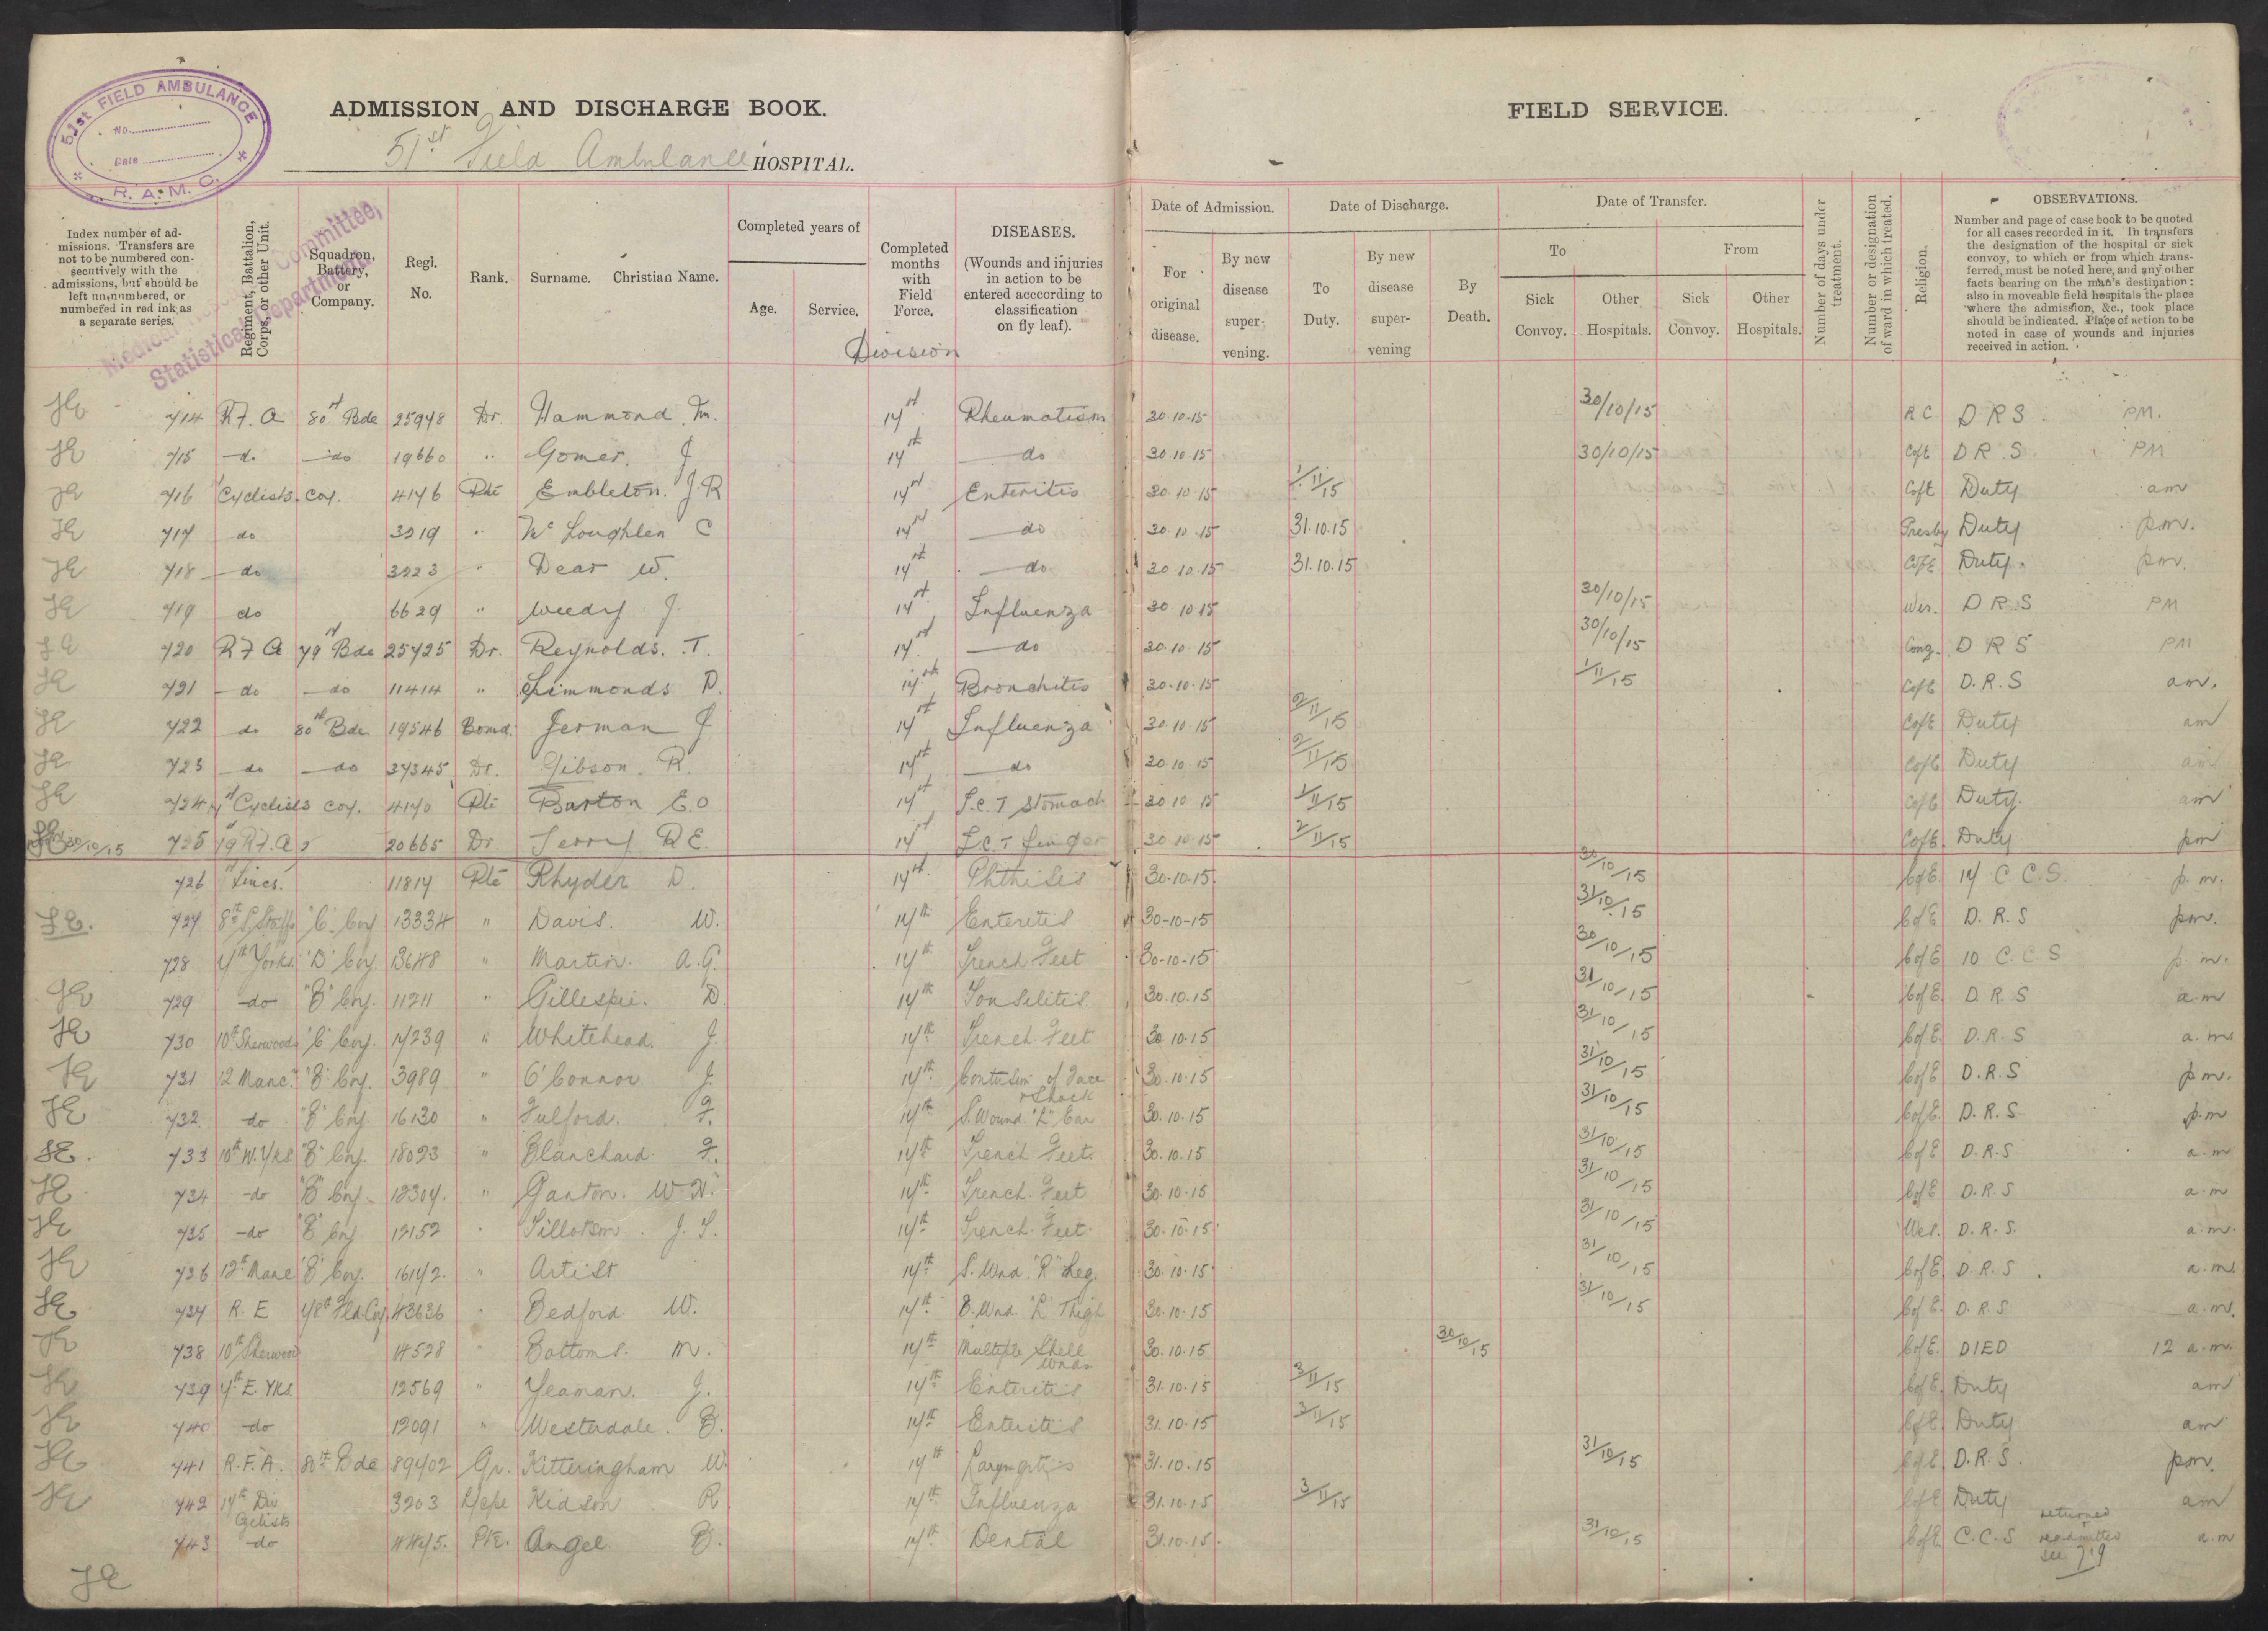 51st FIELD AMBULANCE
No.
Date
R.A.M.C.
ADMISSION AND DISCHARGE BOOK.
51st Field Ambulance HOSPITAL.
FIELD SERVICE.
Committee,
Statistical Department.
Index number of admissions. Transfers are not to be numbered consecutively with the admissions, but should be left unnumbered, or numbered in red ink as a separate series.
Regiment, Battalion, Corps, or other Unit.
Squadron, Battery, or Company.
Regl. No.
Rank.
Surname. Christian Name.
Completed years of
Age. Service.
Completed months with Field Force.
Division
DISEASES.
(Wounds and injuries in action to be entered acccording to classification on fly leaf).
Date of Admission.
For original disease.
By new disease supervening.
Date of Discharge.
To Duty.
By new disease supervening
By Death.
Date of Transfer.
To
Sick Convoy.
Other Hospitals.
From
Sick Convoy.
Other Hospitals.
Number of days under treatment.
Number or designation of ward in which treated.
Religion.
OBSERVATIONS.
Number and page of case book to be quoted for all cases recorded in it. In transfers the designation of the hospital or sick convoy, to which or from which transferred, must be noted here, and any other facts bearing on the man's destination: also in moveable field hospitals the place where the admission, &c., took place should be indicated. Place of action to be noted in case of wounds and injuries received in action.
714 R.F.A 80 Bde 25948 Dr. Hammond. Rheumatism 30.10.15 30/10/15 RC DRS. PM.
715 do do 19660 " Gomer. J do 30.10.15 30/10/15 CofE D R S. PM
716 Cyclists. Coy. 4176 Pte Embleton. J.R Enteritis 30.10.15 1/11/15 CofE Duty am
717 do 3219 " Mc Loughlen C do 30.10.15 31.10.15 Presby Duty pm.
718 do 3223 " Dear W. do 30.10.15 31.10.15 CofE Duty. pm.
719 do 6629 " J. Influenza 30.10.15 30/10/15 Wes. D R S PM
720 R F A 79 Bde 25725 Dr. Reynolds. T. do 30.10.15 30/10/15 Cong. D R S PM
721 do do 11414 " Simmonds D. Bronchitis 30.10.15 1/11/15 CofE D.R.S am.
722 do 80 Bde 19546 Bomd. Jerman J Influenza 30.10.15 2/11/15 CofE Duty am
723 do do 37345 Dr. Gibson. R. do 30.10.15 2/11/15 CofE Duty am
724 Cyclists Coy. 4170 Pte Barton E.O I.C.T Stomach 30 10 15 1/11/15 CofE Duty. am
30/10/15 725 R.F.A 20665 Dr Terry R E. I.C.T finger 30.10.15 2/11/15 CofE. Duty pm
726 Lincs. 11817 Pte Rhyder D. Phthisis 30-10-15. 30/10/15 CofE. 17 C C.S. p.m.
727 8th S. Staffs "C" Coy 13334 " Davis. W. 14th Enteritis 30-10-15 31/10/15 CofE D.R.S pm.
728 7th Yorks. "D" Coy. 13648 " Martin. A.G. 14th Trench Feet 30-10-15 30/10/15 CofE 10 C.C.S p.m.
729 do "B" Coy. 11211 " Gillespie. D. 14th Tonsilitis 30.10.15 31/10/15 CofE. D.R.S a.m
730 10th Sherwoods "C" Coy. 17239 " Whitehead. J. 14th Trench Feet 30.10.15 31/10/15 CofE. D.R.S a.m.
731 12 Manc. "B" Coy. 3989 " O'Connor J. 14th Contusion of Face + Shock 30.10.15 31/10/15 CofE D.R.S pm.
732. do "B" Coy. 16130 " Fulford. F. 14th S. Wound. "L" Ear 30.10.15 31/10/15 CofE. D.R.S p.m
733 10th W. Yks "B" Coy. 18093 " Blanchard F. 14th Trench Feet. 30.10.15 31/10/15 CofE D.R.S a.m
734 do "B" Coy. 12307. " Ganton. W 14th Trench Feet 30.10.15 31/10/15 CofE D.R.S a.m
735 do "B" Coy 12152 " Tillotson. J. 14th Trench Feet. 30.10.15 31/10/15 Wes. D.R.S. a.m.
736 12th Manc "B" Coy. 16172. " Artist 14th S. Wnd. "R" Leg. 30.10.15 31/10/15 CofE. D.R.S. a.m.
737 R.E 78th Fld. Coy. 43636 " Bedford. W. 14th Wnd. "L" Thigh 30.10.15 31/10/15 CofE. D.R.S a.m.
738 10th Sherwood 14528 " Bottoms. M. 14th Multiple Shell Wnds. 30.10.15 30/10/15 CofE. DIED 12 a.m.
739 7th E. Yks 12569 " Yeaman. J. 14th Enteritis 31.10.15 3/11/15 CofE. Duty am
740 do 12091 " Westerdale. 14th Enteritis 31.10.15 3/11/15 CofE. Duty am
741 R.F.A. 80th Bde 89702 Gr. Kitteringham W. 14th Laryngitis 31.10.15 31/10/15 CofE. D.R.S. pm.
742 14th Div Cyclists 3203 L/Cpl Kidson R. 14th Influenza 31.10.15 3/11/15 CofE Duty am
743 do Pte. Angel B. 14th Dental 31.10.15. 31/10/15 CofE. C.C.S returned + readmitted see 719 a.m